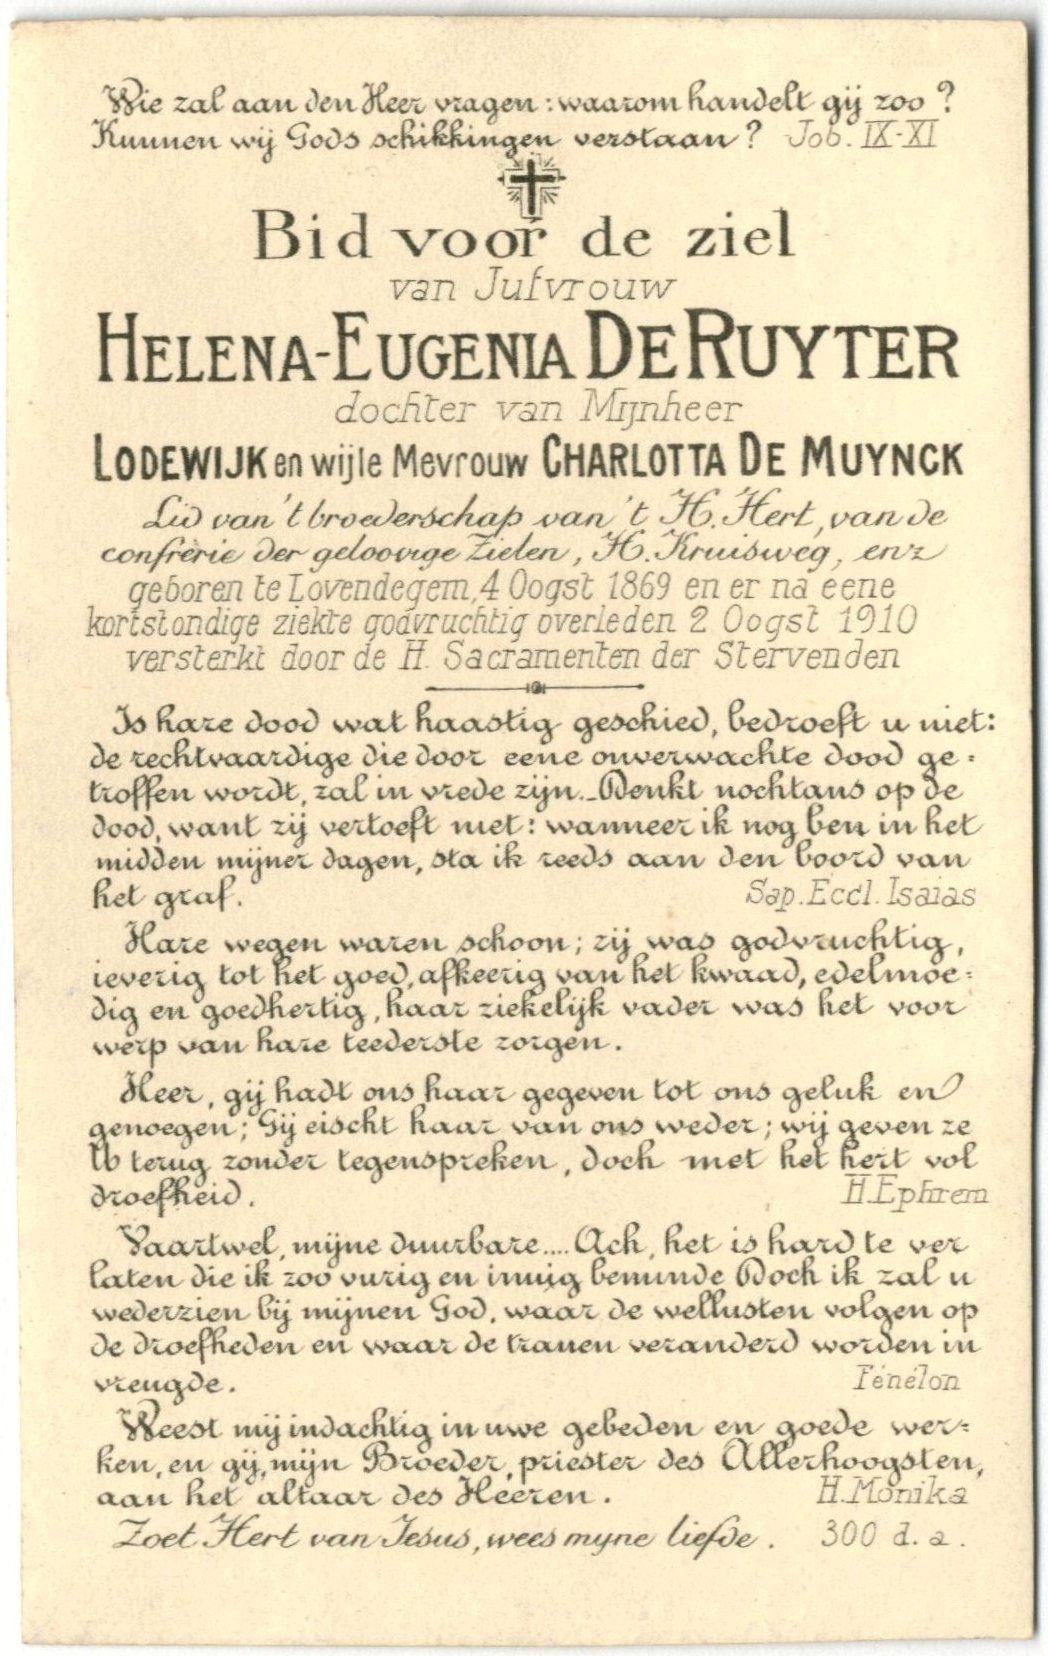 Wie zal aan den Heer vragen : waarom handelt gij zoo ?
Kunnen wij Gods schikkingen verstaan ? Job. IX-XI
Bid voor de ziel
van Jufvrouw
HELENA-EUGENIA DE RUYTER
dochter van Mijnheer
LODEWIJK en wijle Mevrouw CHARLOTTA DE MUYNCK
Lid van 't broederschap van 't H. Hert, van de
confrèrie der geloovige Zielen, H. Kruisweg, enz
geboren te Lovendegem, 4 Oogst 1869 en er na eene
kortstondige ziekte godvruchtig overleden 2 Oogst 1910
versterkt door de H. Sacramenten der Stervenden
Is hare dood wat haastig geschied, bedroeft u niet:
de rechtvaardige die door eene onverwachte dood ge-
troffen wordt, zal in vrede zijn._Denkt nochtans op de
dood, want zij vertoeft niet : wanneer ik nog ben in het
midden mijner dagen, sta ik reeds aan den boord van
het graf. Sap. Eccl. Isaias
Hare wegen waren schoon ; zij was godvruchtig,
ieverig tot het goed, afkeerig van het kwaad, edelmoe-
dig en goedhertig, haar ziekelijk vader was het voor
werp van hare teederste zorgen.
Heer, gij hadt ons haar gegeven tot ons geluk en
genoegen ; Gij eischt haar van ons weder ; wij geven ze
U terug zonder tegenspreken, doch met het hert vol
droefheid. H. Ephrem
Vaartwel, mijne duurbare.... Ach, het is hard te ver
laten die ik zoo vurig en innig beminde Doch ik zal u
wederzien bij mijnen God, waar de wellusten volgen op
de droefheden en waar de tranen veranderd worden in
vreugde. Fénélon
Weest mij indachtig in uwe gebeden en goede wer-
ken, en gij, mijn Broeder, priester des Allerhoogsten,
aan het altaar des Heeren. H. Monika
Zoet Hert van Jesus, wees myne liefde. 300 d. a.